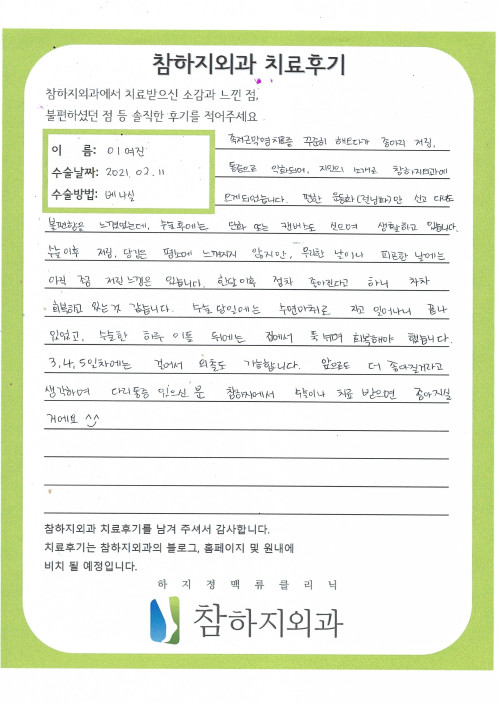 참하지외과 치료후기
참하지외과에서 치료받으신 소감과 느낀 점,
불편하셨던 점 등 솔직한 후기를 적어주세요
이 름: 이여진
수술날짜: 2021. 02. 11
수술방법: 베나실
족저근막염치료를 꾸준히 해오다가 종아리 저림,
통증으로 악화되어, 지인의 소개로 참하지외과에
오게되었습니다. 편한 운동화(런닝화)만 신고 다녀도
불편함을 느꼈었는데, 수술후에는 단화 또는 캔버스도 신으며 생활하고 있습니다.
수술이후 저림, 당김은 평소에 느껴지지 않지만, 무리한 날이나 피로한 날에는
아직 조금 저린느낌은 있습니다. 한달이후 점차 좋아진다고 하니 차차
회복하고 있는것 같습니다. 수술 당일에는 수면마취로 자고 일어나니 끝나
있었고, 수술한 하루 이틀 뒤에는 집에서 푹 쉬며 회복해야 했습니다.
3,4,5일차에는 걸어서 외출도 가능합니다. 앞으로도 더 좋아질거라고
생각하며 다리통증 있으신 분 참하지에서 수술이나 치료 받으면 좋아지실
거에요 ^^
참하지외과 치료후기를 남겨 주셔서 감사합니다.
치료후기는 참하지외과의 블로그, 홈페이지 및 원내에
비치 될 예정입니다.
하지정맥류클리닉
참하지외과